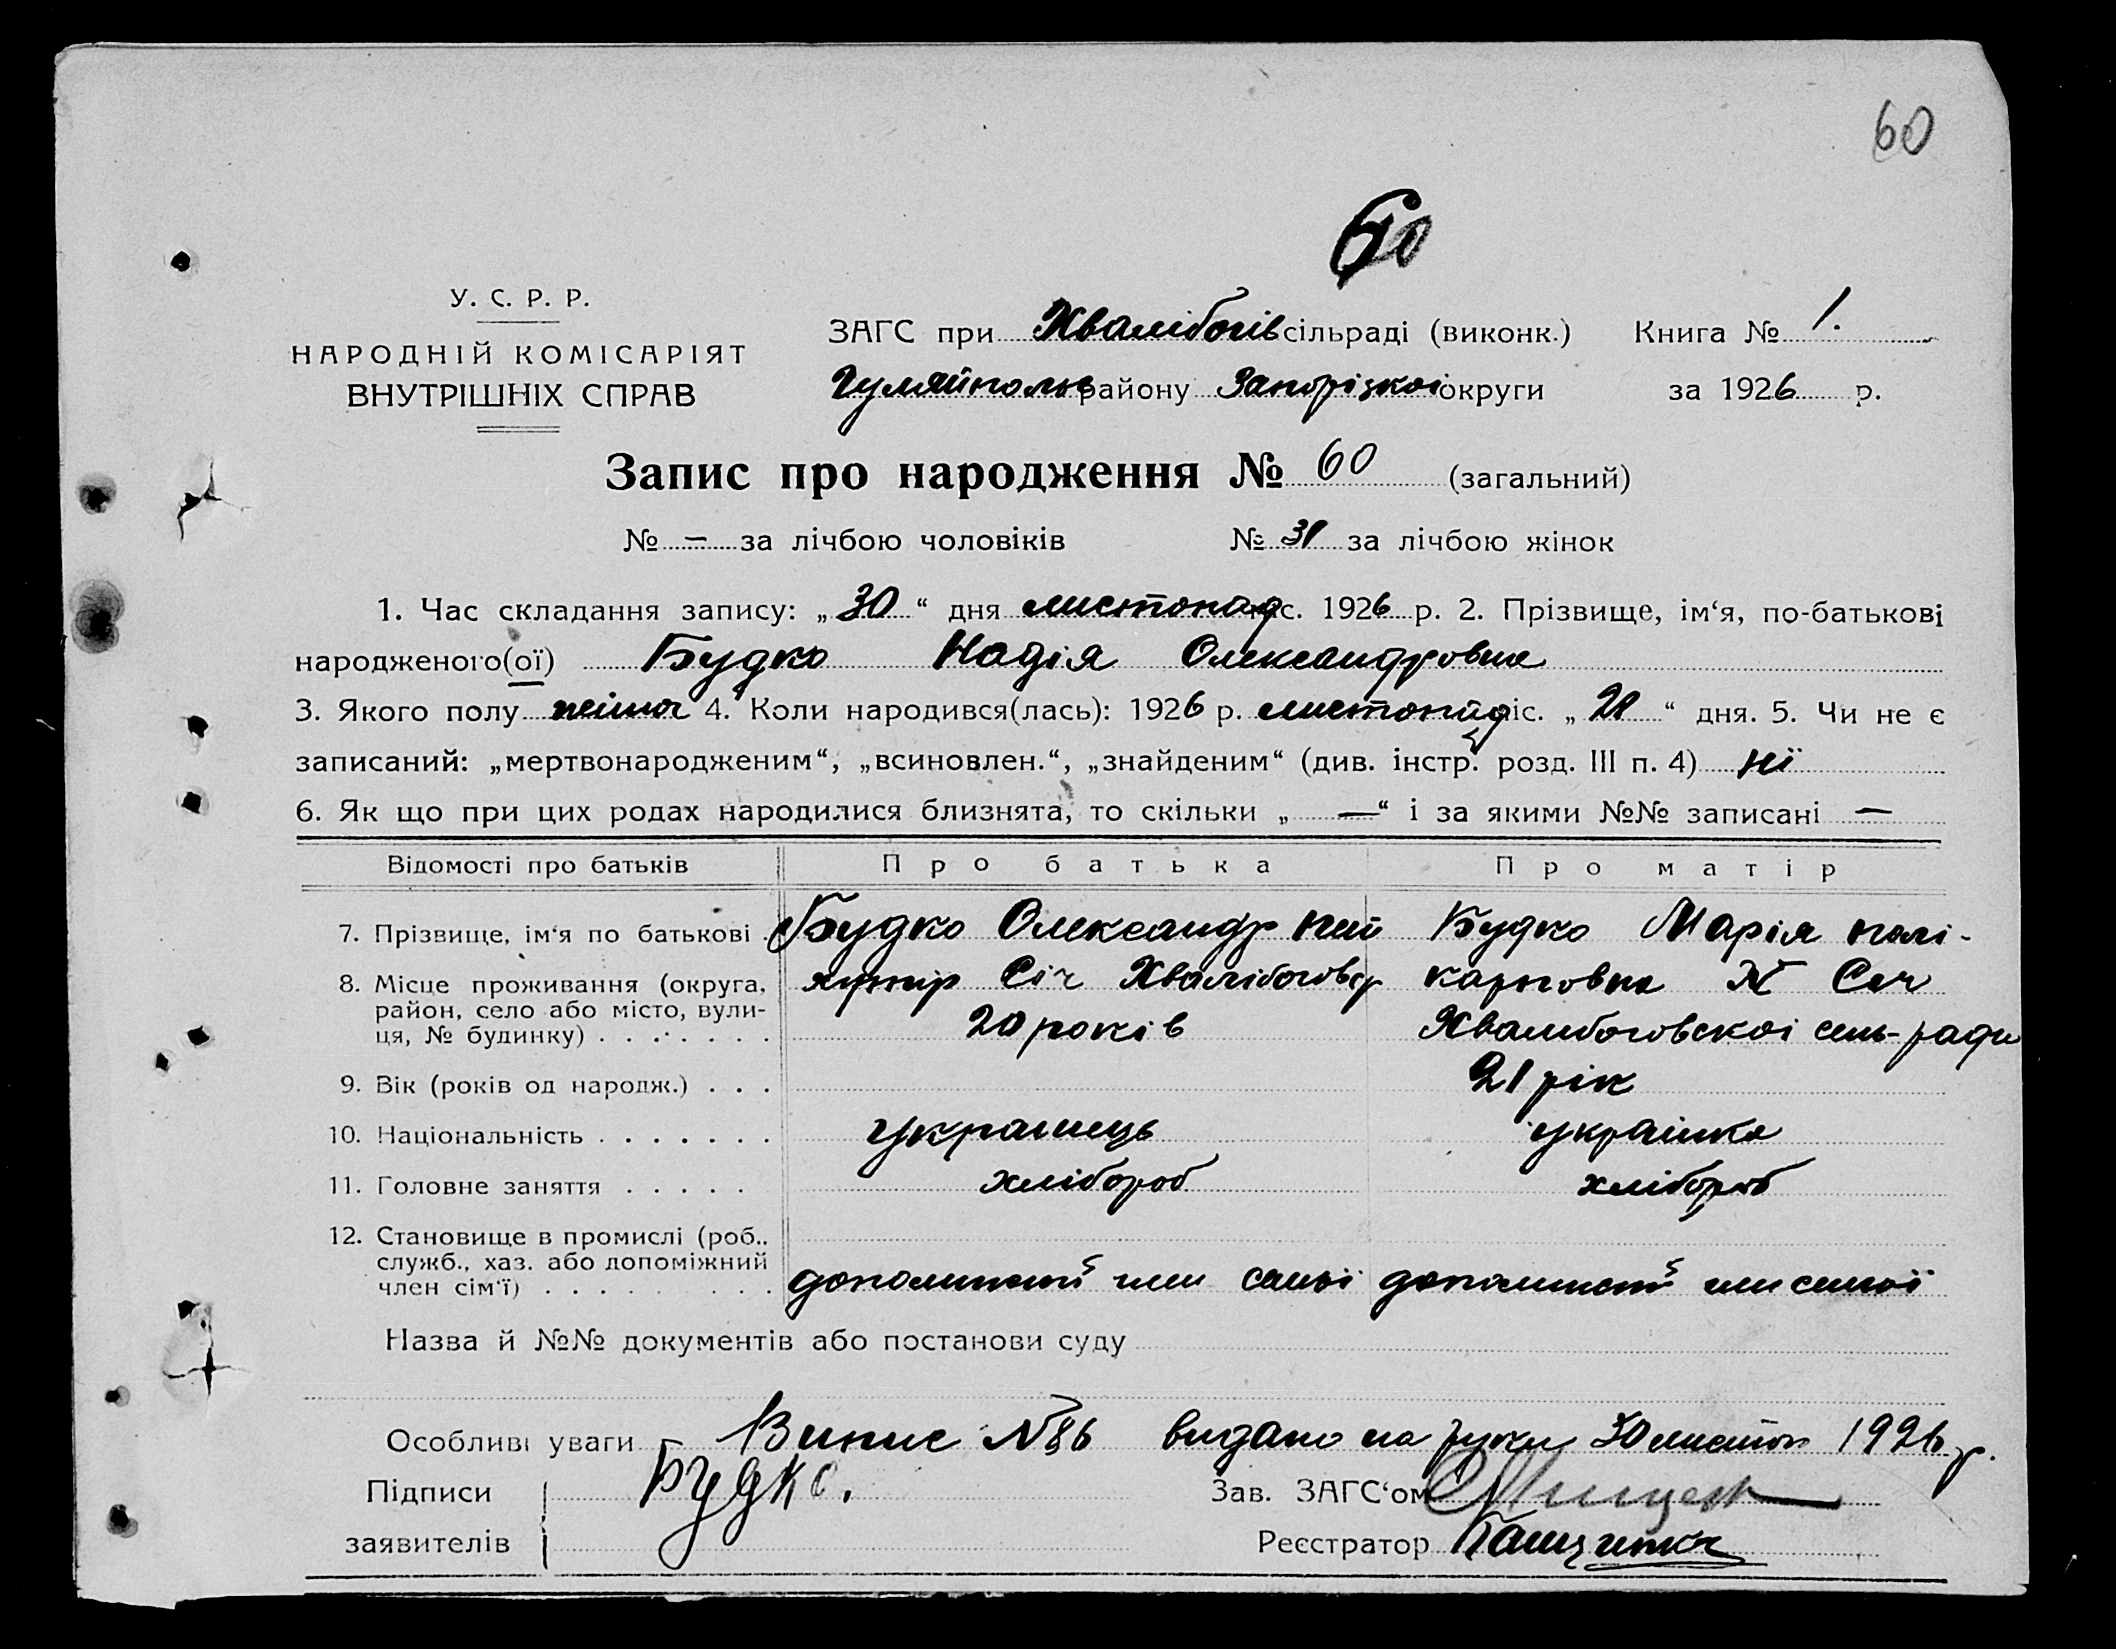 60
60
У. С. Р. Р.
НАРОДНІЙ КОМІСАРІЯТ
ВНУТРІШНІХ СПРАВ
ЗАГС при Хвалібогів сільраді (виконк.) Книга № 1.
Гуляйполь району Запорізкоі округи за 1926 р.
Запис про народження № 60 (загальний)
№ — за лічбою чоловіків № 31 за лічбою жінок
1. Час складання запису: „30“ дня листопад міс. 1926 р. 2. Прізвище, ім‘я, по-батькові
народженого(ої) Будко Надія Олександровна
3. Якого полу жіноч 4. Коли народився(лась): 1926 р. листопад міс. „21“ дня. 5. Чи не є
записаний: „мертвонародженим“, „всиновлен.“, „знайденим“ (див. інстр. розд. III п. 4) ні
6. Як що при цих родах народилися близнята, то скільки „—“ і за якими №№ записані —
Відомості про батьків Про батька Про матір
7. Прізвище, ім‘я по батькові Будко Олександр Будко Марія полі-
8. Місце проживання (округа, хутір Січ Хвалібоговср карповна Х Сеч
район, село або місто, вули-
ця, № будинку) . . . . . . . 20 років Хвалибоговскоі сель-ради
9. Вік (років од народж.) . . . 21 рік
10. Національність . . . . . . . українець українка
11. Головне заняття . . . . . хлібороб хлібороб
12. Становище в промислі (роб..
служб., хаз. або допоміжний
член сім‘ї) . . . . . . . . член семьі член семьї
Назва й №№ документів або постанови суду
Особливі уваги Випис №86 видано на руки 30 листоп 1926 р.
Підписи Будко. Зав. ЗАГС‘ом
заявителів Реєстратор